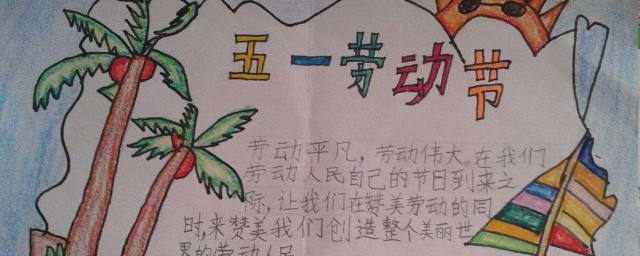 五一劳动节
劳动平凡，劳动伟大。在我们
劳动人民自己的节日到来之
际，让我们在赞美劳动的同
时，来赞美我们创造整个美丽世
界的劳动人民